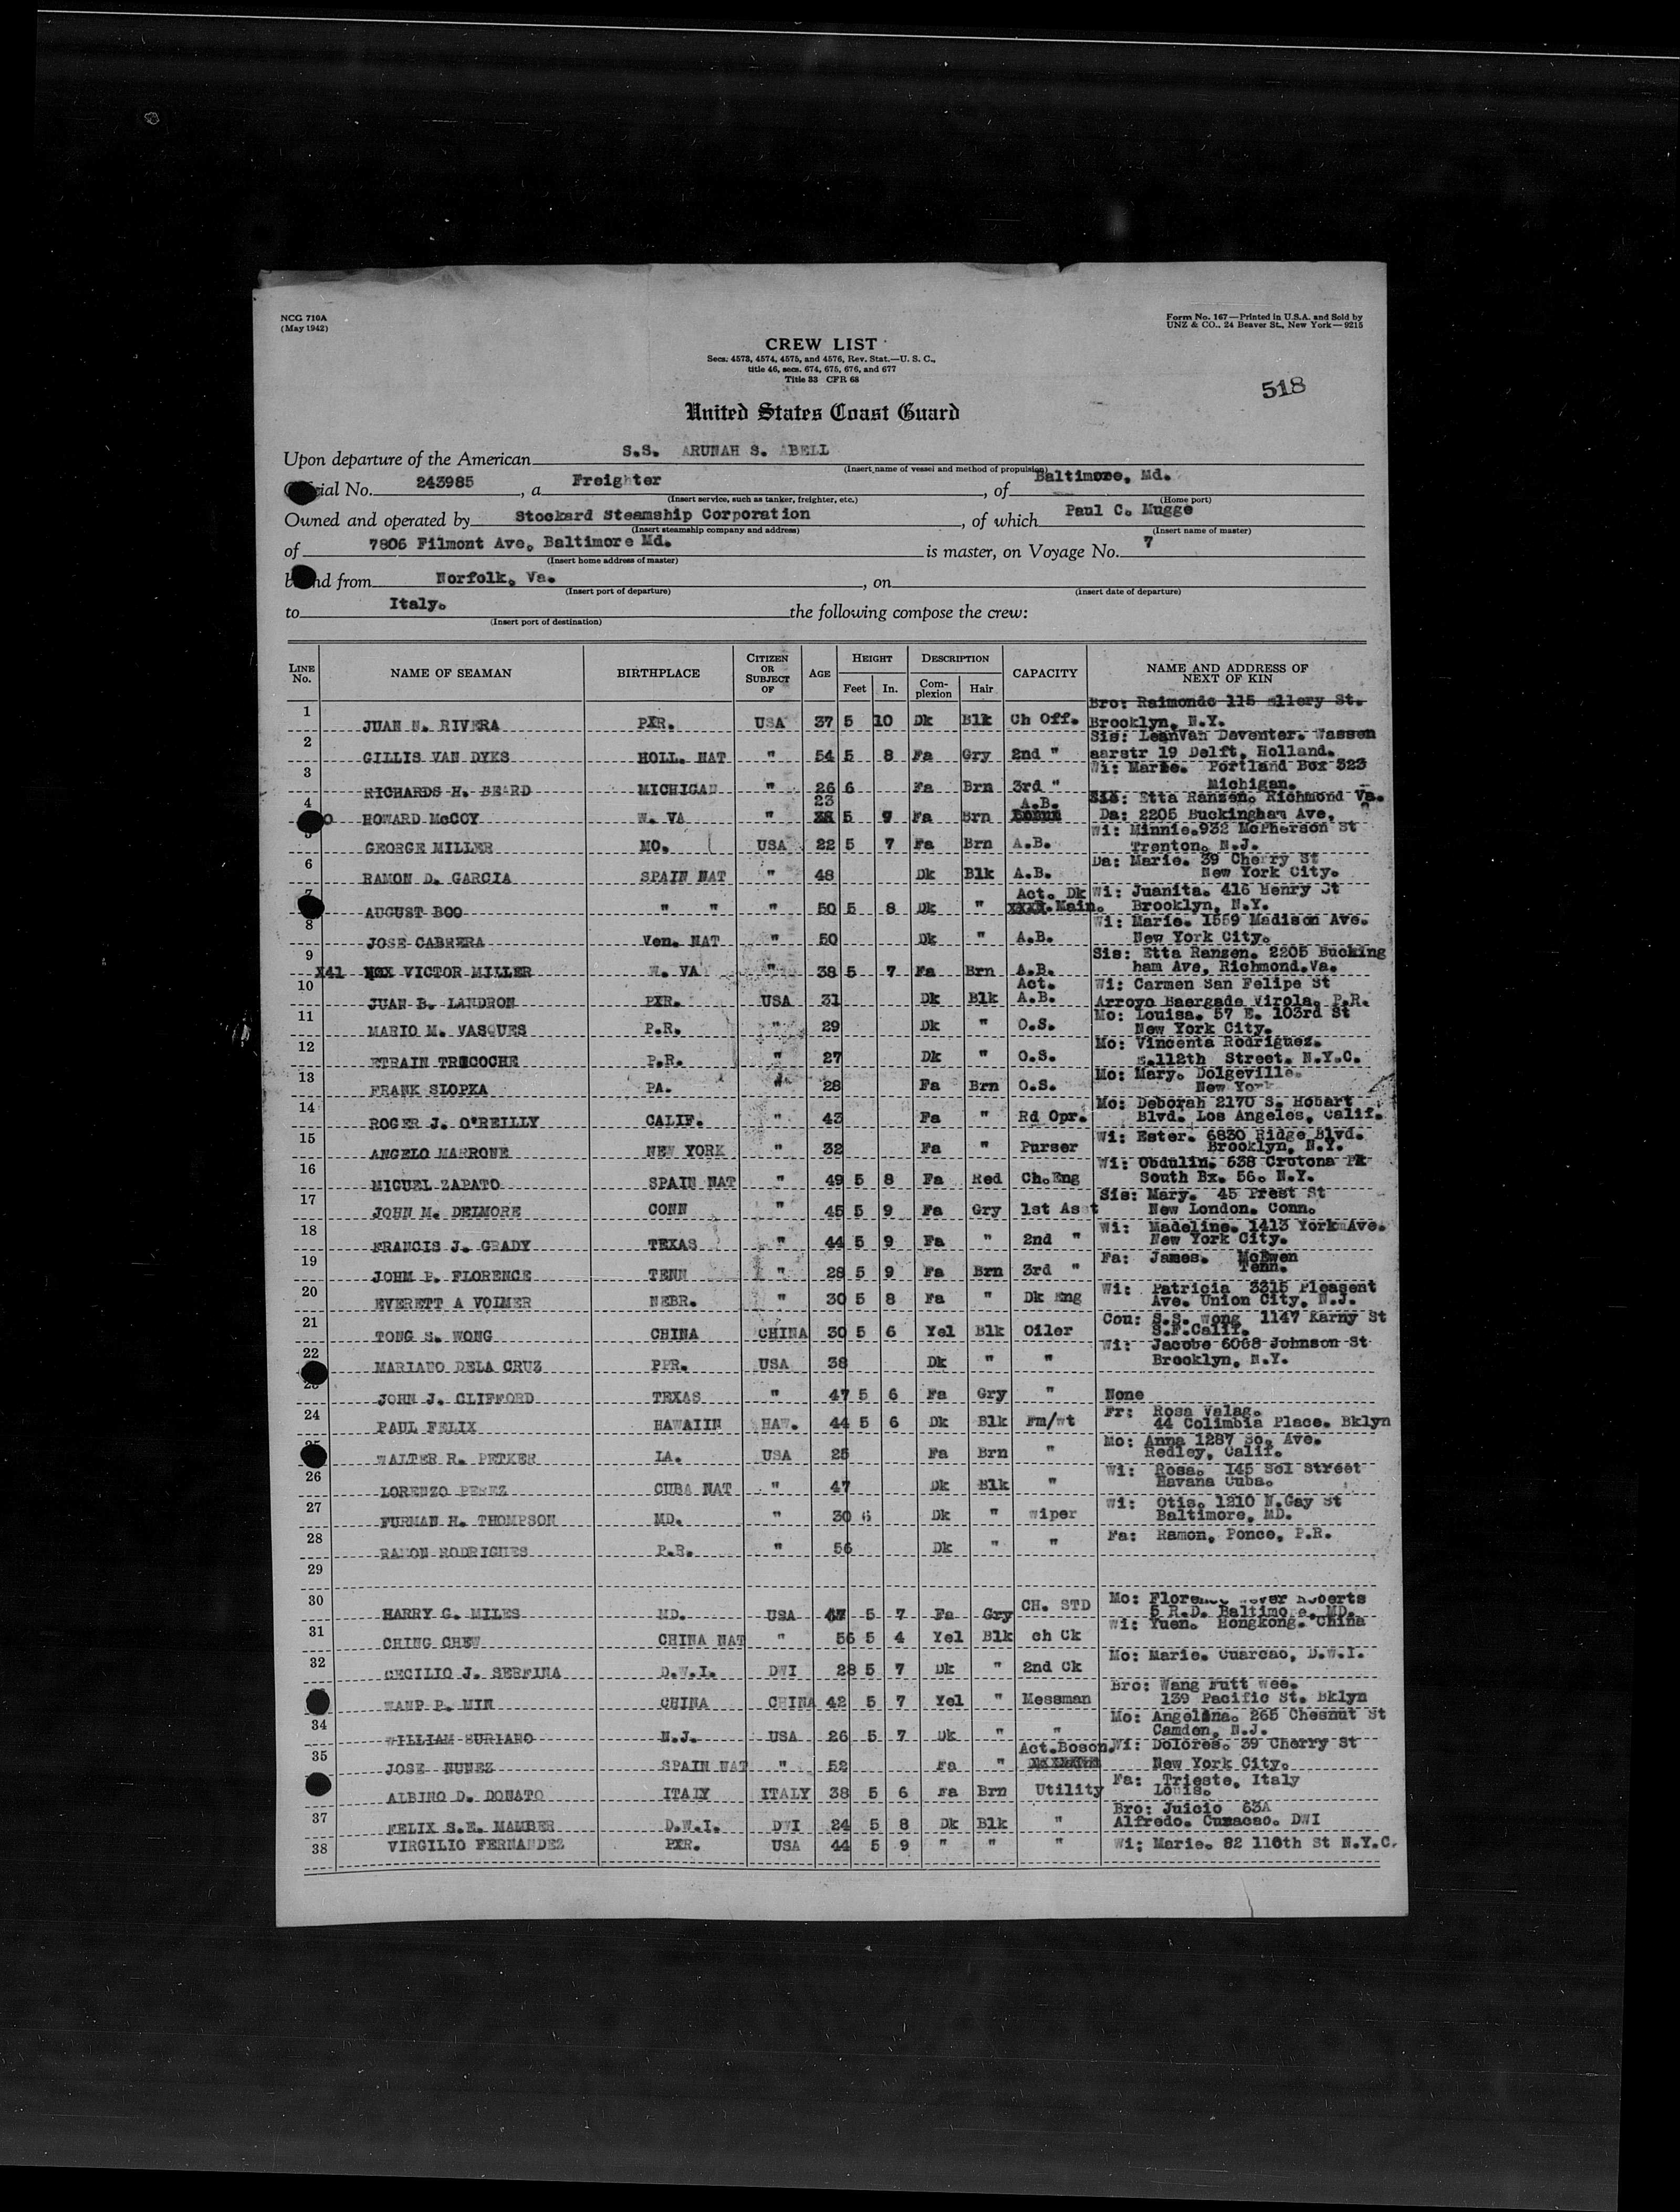 NCG 710A
(May 1942)
Form No. 167—Printed in U.S.A. and Sold by
UNZ & CO., 24 Beaver St., New York—9215
CREW LIST
Secs. 4573, 4574, 4575, and 4576, Rev. Stat.—U. S. C.,
title 46, secs. 674, 675, 676, and 677
Title 33 CFR 68
518
United States Coast Guard
Upon departure of the American S.S. ARUNAH S. ABELL
(Insert name of vessel and method of propulsion)
ial No. 243985, a Freighter, of Baltimore, Md.
(Insert service, such as tanker, freighter, etc.) (Home port)
Owned and operated by Stockard Steamship Corporation, of which Paul C. Mugge
(Insert steamship company and address) (Insert name of master)
of 7806 Filmont Ave, Baltimore Md. is master, on Voyage No. 7
(Insert home address of master)
b nd from Norfolk, Va., on
(Insert port of departure) (Insert date of departure)
to Italy. the following compose the crew:
(Insert port of destination)
LINE No. NAME OF SEAMAN BIRTHPLACE CITIZEN OR SUBJECT OF AGE HEIGHT Feet In. DESCRIPTION Complexion Hair CAPACITY NAME AND ADDRESS OF NEXT OF KIN
1 JUAN N. RIVERA PXR. USA 37 5 10 Dk Blk Ch Off. Bro: Raimondo 115 Ellery St. Brooklyn, N.Y.
2 GILLIS VAN DYKS HOLL. NAT " 54 5 8 Fa Gry 2nd " Sis: LeanVan Deventer. Wassen aarstr 19 Delft, Holland.
3 RICHARDS H. BEARD MICHIGAN " 26 6 Fa Brn 3rd " Wi: Marie. Portland Box 323 Michigan.
4 HOWARD McCOY W. VA " 23 5 9 Fa Brn A.B. Sis: Etta Ranzen. Richmond Va. Da: 2205 Buckingham Ave,
5 GEORGE MILLER MO. USA 22 5 7 Fa Brn A.B. Wi: Minnie.932 McPherson St Trenton. N.J.
6 RAMON D. GARCIA SPAIN NAT " 48 Dk Blk A.B. Da: Marie. 39 Cherry St New York City.
7 AUGUST BOO " " " 50 5 8 Dk " Act. Dk XXXX.Main. Wi: Juanita. 416 Henry St Brooklyn, N.Y.
8 JOSE CABRERA Ven. NAT " 50 Dk " A.B. Wi: Marie. 1559 Madison Ave. New York City.
9 X41 VICTOR MILLER W. VA " 38 5 7 Fa Brn A.B. Sis: Etta Ranzen. 2205 Bucking ham Ave, Richmond.Va.
10 JUAN B. LANDRON PXR. USA 31 Dk Blk Act. A.B. Wi: Carmen San Felipe St Arroyo Baergade Virola, P.R.
11 MARIO M. VASQUES P.R. " 29 Dk " O.S. Mo: Louisa. 57 E. 103rd St New York City.
12 ETRAIN TRICOCHE P.R. " 27 Dk " O.S. Mo: Vincenta Rodriguez. E.112th Street. N.Y.C.
13 FRANK SLOPKA PA. " 28 Fa Brn O.S. Mo: Mary. Dolgeville. New York
14 ROGER J. O'REILLY CALIF. " 43 Fa " Rd Opr. Mo: Deborah 2170 S. Hobart Blvd. Los Angeles, Calif.
15 ANGELO MARRONE NEW YORK " 32 Fa " Purser Wi: Ester. 6830 Ridge Blvd. Brooklyn, N.Y.
16 MIGUEL ZAPATO SPAIN NAT " 49 5 8 Fa Red Ch.Eng Wi: Obdulin. 638 Crotona Pk South Bx. 56. N.Y.
17 JOHN M. DELMORE CONN " 45 5 9 Fa Gry 1st Asst Sis: Mary. 45 Prest St New London. Conn.
18 FRANCIS J. GRADY TEXAS " 44 5 9 Fa " 2nd " Wi: Madeline. 1413 York Ave. New York City.
19 JOHM P. FLORENCE TENN " 28 5 9 Fa Brn 3rd " Fa: James. McEwen Tenn.
20 EVERETT A VOLMER NEBR. " 30 5 8 Fa " Dk Eng Wi: Patricia 3315 Pleasent Ave. Union City, N.J.
21 TONG S. WONG CHINA CHINA 30 5 6 Yel Blk Oiler Cou: S.S. Wong 1147 Karny St S.F.Calif.
22 MARIANO DELA CRUZ PPR. USA 38 Dk " " Wi: Jacobe 6068 Johnson St Brooklyn, N.Y.
23 JOHN J. CLIFFORD TEXAS " 47 5 6 Fa Gry " None
24 PAUL FELIX HAWAIIN HAW. 44 5 6 Dk Blk Fm/wt Fr: Rosa Valag. 44 Colimbia Place. Bklyn
25 WALTER R. PETKER IA. USA 25 Fa Brn " Mo: Anna 1287 So. Ave. Redley, Calif.
26 LORENZO PEREZ CUBA NAT " 47 Dk Blk " Wi: Rosa. 145 Sol Street Havana Cuba.
27 FURMAN H. THOMPSON MD. " 30 6 Dk " wiper Wi: Otis. 1210 N.Gay St Baltimore, MD.
28 RAMON RODRIGUES P.R. " 56 Dk " " Fa: Ramon, Ponce, P.R.
29
30 HARRY G. MILES MD. USA 5 7 Fa Gry CH. STD Mo: Roberts 5 R.D. Baltimore, MD.
31 CHING CHEW CHINA NAT " 56 5 4 Yel Blk ch Ck Wi: Yuen. Hongkong. China
32 CECILIO J. SERFINA D.W.I. DWI 28 5 7 Dk " 2nd Ck Mo: Marie. Cuarcao, D.W.I.
WAMP P. MIN CHINA CHINA 42 5 7 Yel " Messman Bro: Wang Futt Wee. 139 Pacific St. Bklyn
34 WILLIAM SURIANO N.J. USA 26 5 7 Dk " " Mo: Angelina. 265 Chesnut St Camden, N.J.
35 JOSE NUNEZ SPAIN NAT " 52 Fa " Act.Boson. Wi: Dolores. 39 Cherry St New York City.
ALBINO D. DONATO ITALY ITALY 38 5 6 Fa Brn Utility Fa: Trieste, Italy Louis.
37 FELIX S.E. MAMBER D.W.I. DWI 24 5 8 Dk Blk " Bro: Juicio 63A Alfredo. Curacao. DWI
38 VIRGILIO FERNANDEZ PXR. USA 44 5 9 " " " Wi: Marie. 82 116th St N.Y.C.